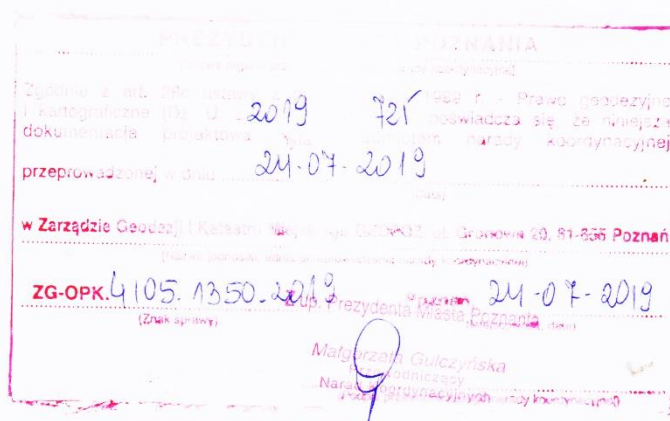 PREZYDENT POZNANIA
Zgodnie z art. 28c ustawy z 1989 r. - Prawo geodezyjne
i kartograficzne (Dz. U. 2019 725 poświadcza się, że niniejsza
dokumentacja projektowa była przedmiotem narady koordynacyjnej
przeprowadzonej w dniu 24-07-2019
(data)
w Zarządzie Geodezji i Katastru Miejskiego GEOPOZ, ul. Gronowa 20, 61-655 Poznań
ZG-OPK.4105.1350.2019 Poznań 24-07-2019
(Znak sprawy)
Z up. Prezydenta Miasta Poznania
Małgorzata Gulczyńska
Przewodniczący
Narad Koordynacyjnych